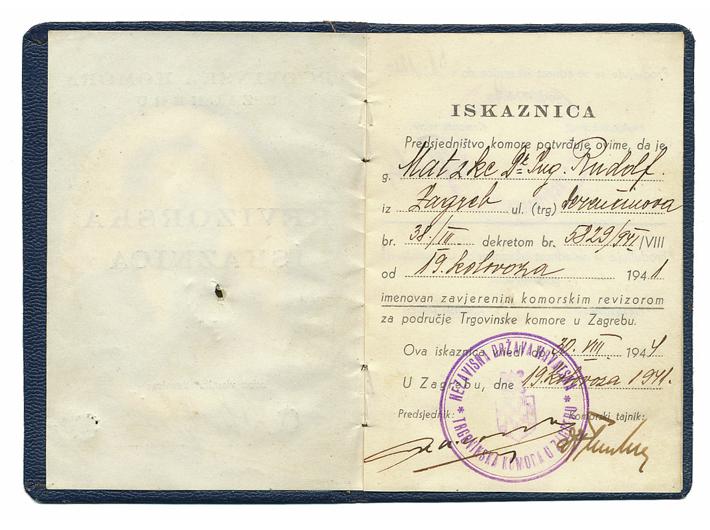 TRGOVINSKA KOMORA
U ZAGREBU
REVIZORSKA
ISKAZNICA
ISKAZNICA
Predsjedništvo komore potvrđuje ovime, da je
g. Matzke Dr. Ing. Rudolf.
iz Zagreb ul. (trg)
br. 38./III. dekretom br. 5829/941/VIII
od 19. kolovoza 1941
imenovan zavjerenim komorskim revizorom
za područje Trgovinske komore u Zagrebu.
Ova iskaznica vrijedi do 30. VIII. 1944
U Zagrebu, dne 19. kolovoza 1941.
Predsjednik: Komorski tajnik:
* NEZAVISNA DRŽAVA HRVATSKA *
TRGOVINSKA KOMORA U ZAGREBU